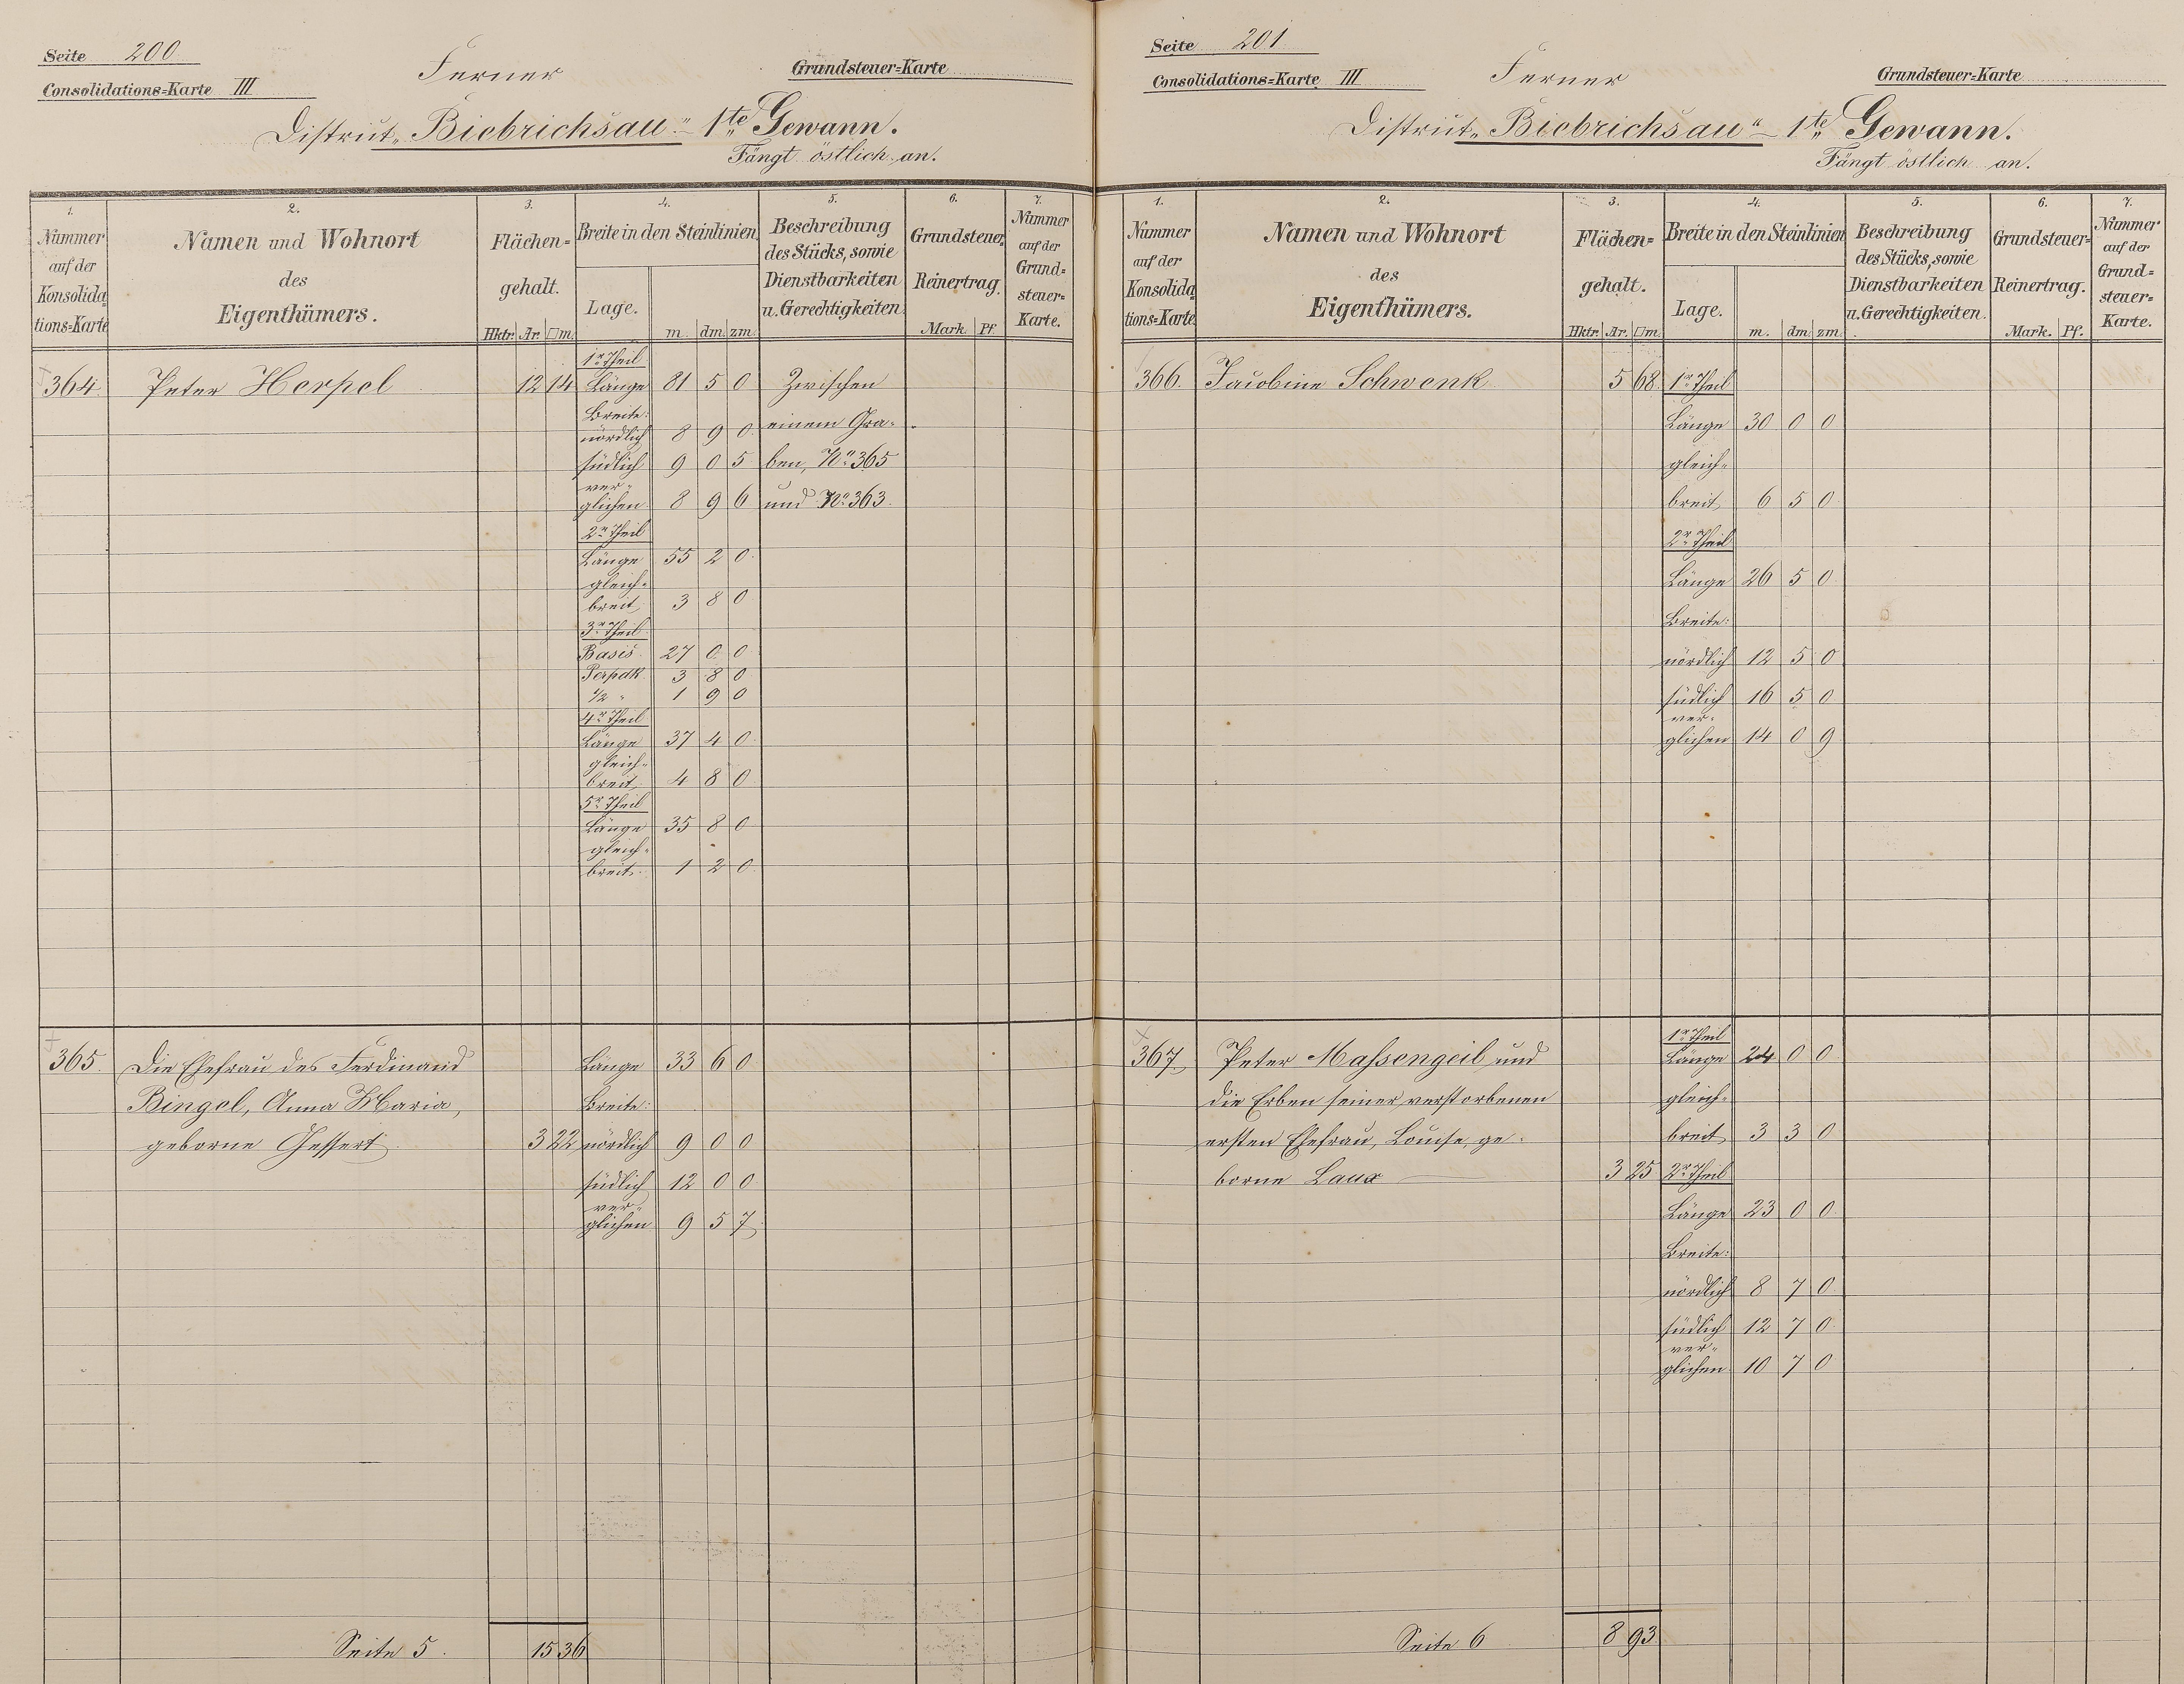 Seite 200
Consolidations=Karte III
Ferner
Grundsteuer=Karte
District „Biebrichsau“ – 1te Gewann.
Fängt östlich an.
1. 2. 3. 4. 5. 6. 7.
Nummer auf der Konsolida tions=Karte
Namen und Wohnort des Eigenthümers.
Flächen= gehalt.
Hktr. Ar. □m.
Breite in den Steinlinien.
Lage. m. dm. zm.
Beschreibung des Stücks, sowie Dienstbarkeiten u. Gerechtigkeiten
Grundsteuer= Reinertrag.
Mark Pf.
Nummer auf der Grund= steuer= Karte.
1r Theil
364. Peter Herpel 12 14 Länge 81 5 0 Zwischen
Breite:
nördlich 8 9 0 einem Gra=
südlich 9 0 5 ben, No 365
ver=
glichen 8 9 6 und No 363.
2r Theil
Länge 55 2 0
gleich=
breit 3 8 0
3r Theil
Basis 27 0 0
Perpdk. 3 8 0
1/2 " 1 9 0
4r Theil
Länge 37 4 0
gleich=
breit 4 8 0
5r Theil
Länge 35 8 0
gleich=
breit 1 2 0
365. Die Ehefrau des Ferdinand Länge 33 6 0
Bingel, Anna Maria, Breite:
geborne Gessert 3 22 nördlich 9 0 0
südlich 12 0 0
ver=
glichen 9 5 7
Seite 5. 15 36
Seite 201
Consolidations=Karte III
Ferner
Grundsteuer=Karte
District „Biebrichsau“ – 1te Gewann.
Fängt östlich an.
1. 2. 3. 4. 5. 6. 7.
Nummer auf der Konsolida tions=Karte
Namen und Wohnort des Eigenthümers.
Flächen= gehalt.
Hktr. Ar. □m.
Breite in den Steinlinien
Lage. m. dm. zm.
Beschreibung des Stücks, sowie Dienstbarkeiten u. Gerechtigkeiten.
Grundsteuer= Reinertrag.
Mark. Pf.
Nummer auf der Grund= steuer= Karte.
366. Jacobine Schwenk 5 68 1r Theil
Länge 30 0 0
gleich=
breit 6 5 0
2r Theil
Länge 26 5 0
Breite:
nördlich 12 5 0
südlich 16 5 0
ver=
glichen 14 0 9
1r Theil
367. Peter Maßengeil und Länge 24 0 0
die Erben seiner verstorbenen gleich=
ersten Ehefrau, Louise, ge= breit 3 3 0
borne Laux 3 25 2r Theil
Länge 23 0 0
Breite:
nördlich 8 7 0
südlich 12 7 0
ver=
glichen 10 7 0
Seite 6 8 93